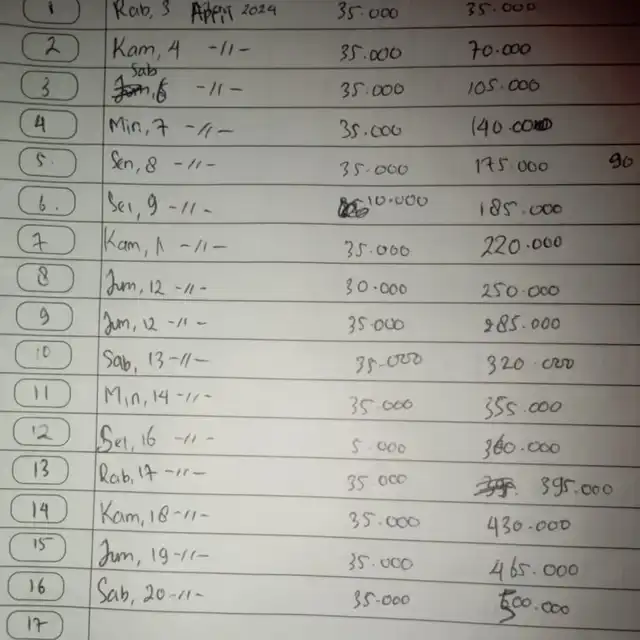 1 Rab, 3 April 2024 35.000 35.000
2 Kam, 4 -11- 35.000 70.000
3 Sab, 6 -11- 35.000 105.000
4 Min, 7 -11- 35.000 140.000
5. Sen, 8 -11- 35.000 175.000 90
6. Sel, 9 -11- 10.000 185.000
7 Kam, 11 -11- 35.000 220.000
8 Jum, 12 -11- 30.000 250.000
9 Jum, 12 -11- 35.000 285.000
10 Sab, 13 -11- 35.000 320.000
11 Min, 14 -11- 35.000 355.000
12 Sel, 16 -11- 5.000 360.000
13 Rab, 17 -11- 35 000 395.000
14 Kam, 18 -11- 35.000 430.000
15 Jum, 19 -11- 35.000 465.000
16 Sab, 20 -11- 35.000 500.000
17